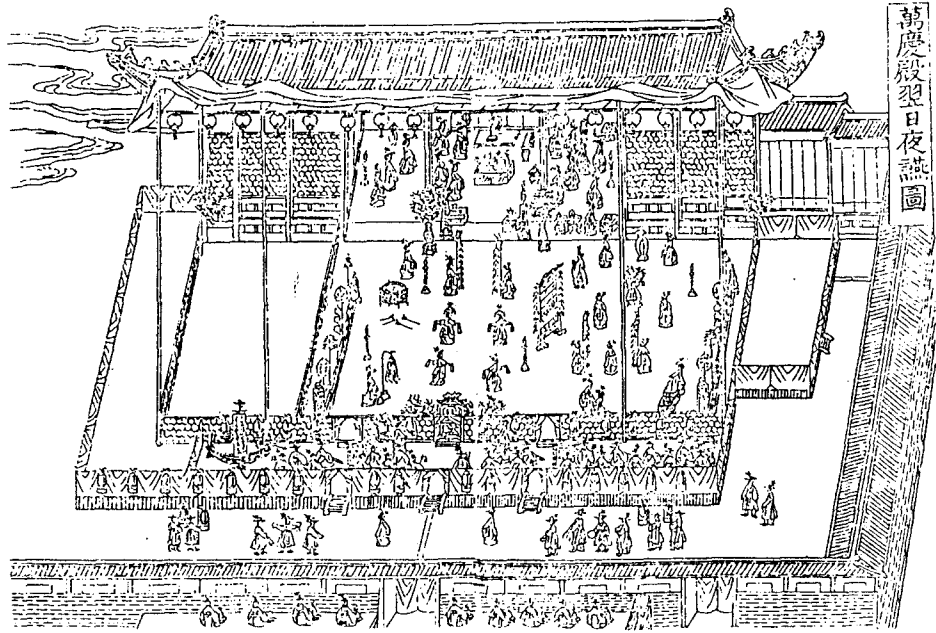 萬慶殿翌日夜讌圖